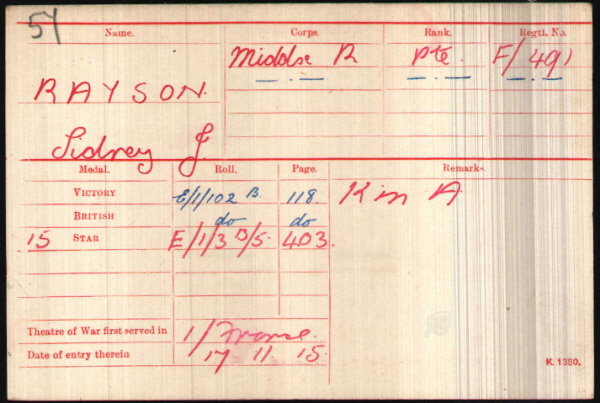 57
Name. Corps. Rank. Regtl. No.
Middlse R Pte. F/491
RAYSON.
Sidney J.
Medal. Roll. Page. Remarks.
VICTORY E/1/102 B. 118. K in A
BRITISH do do
15 STAR E/1/3 B/5. 403.
Theatre of War first served in 1/ France.
Date of entry therein 17 11. 15.
K. 1380.